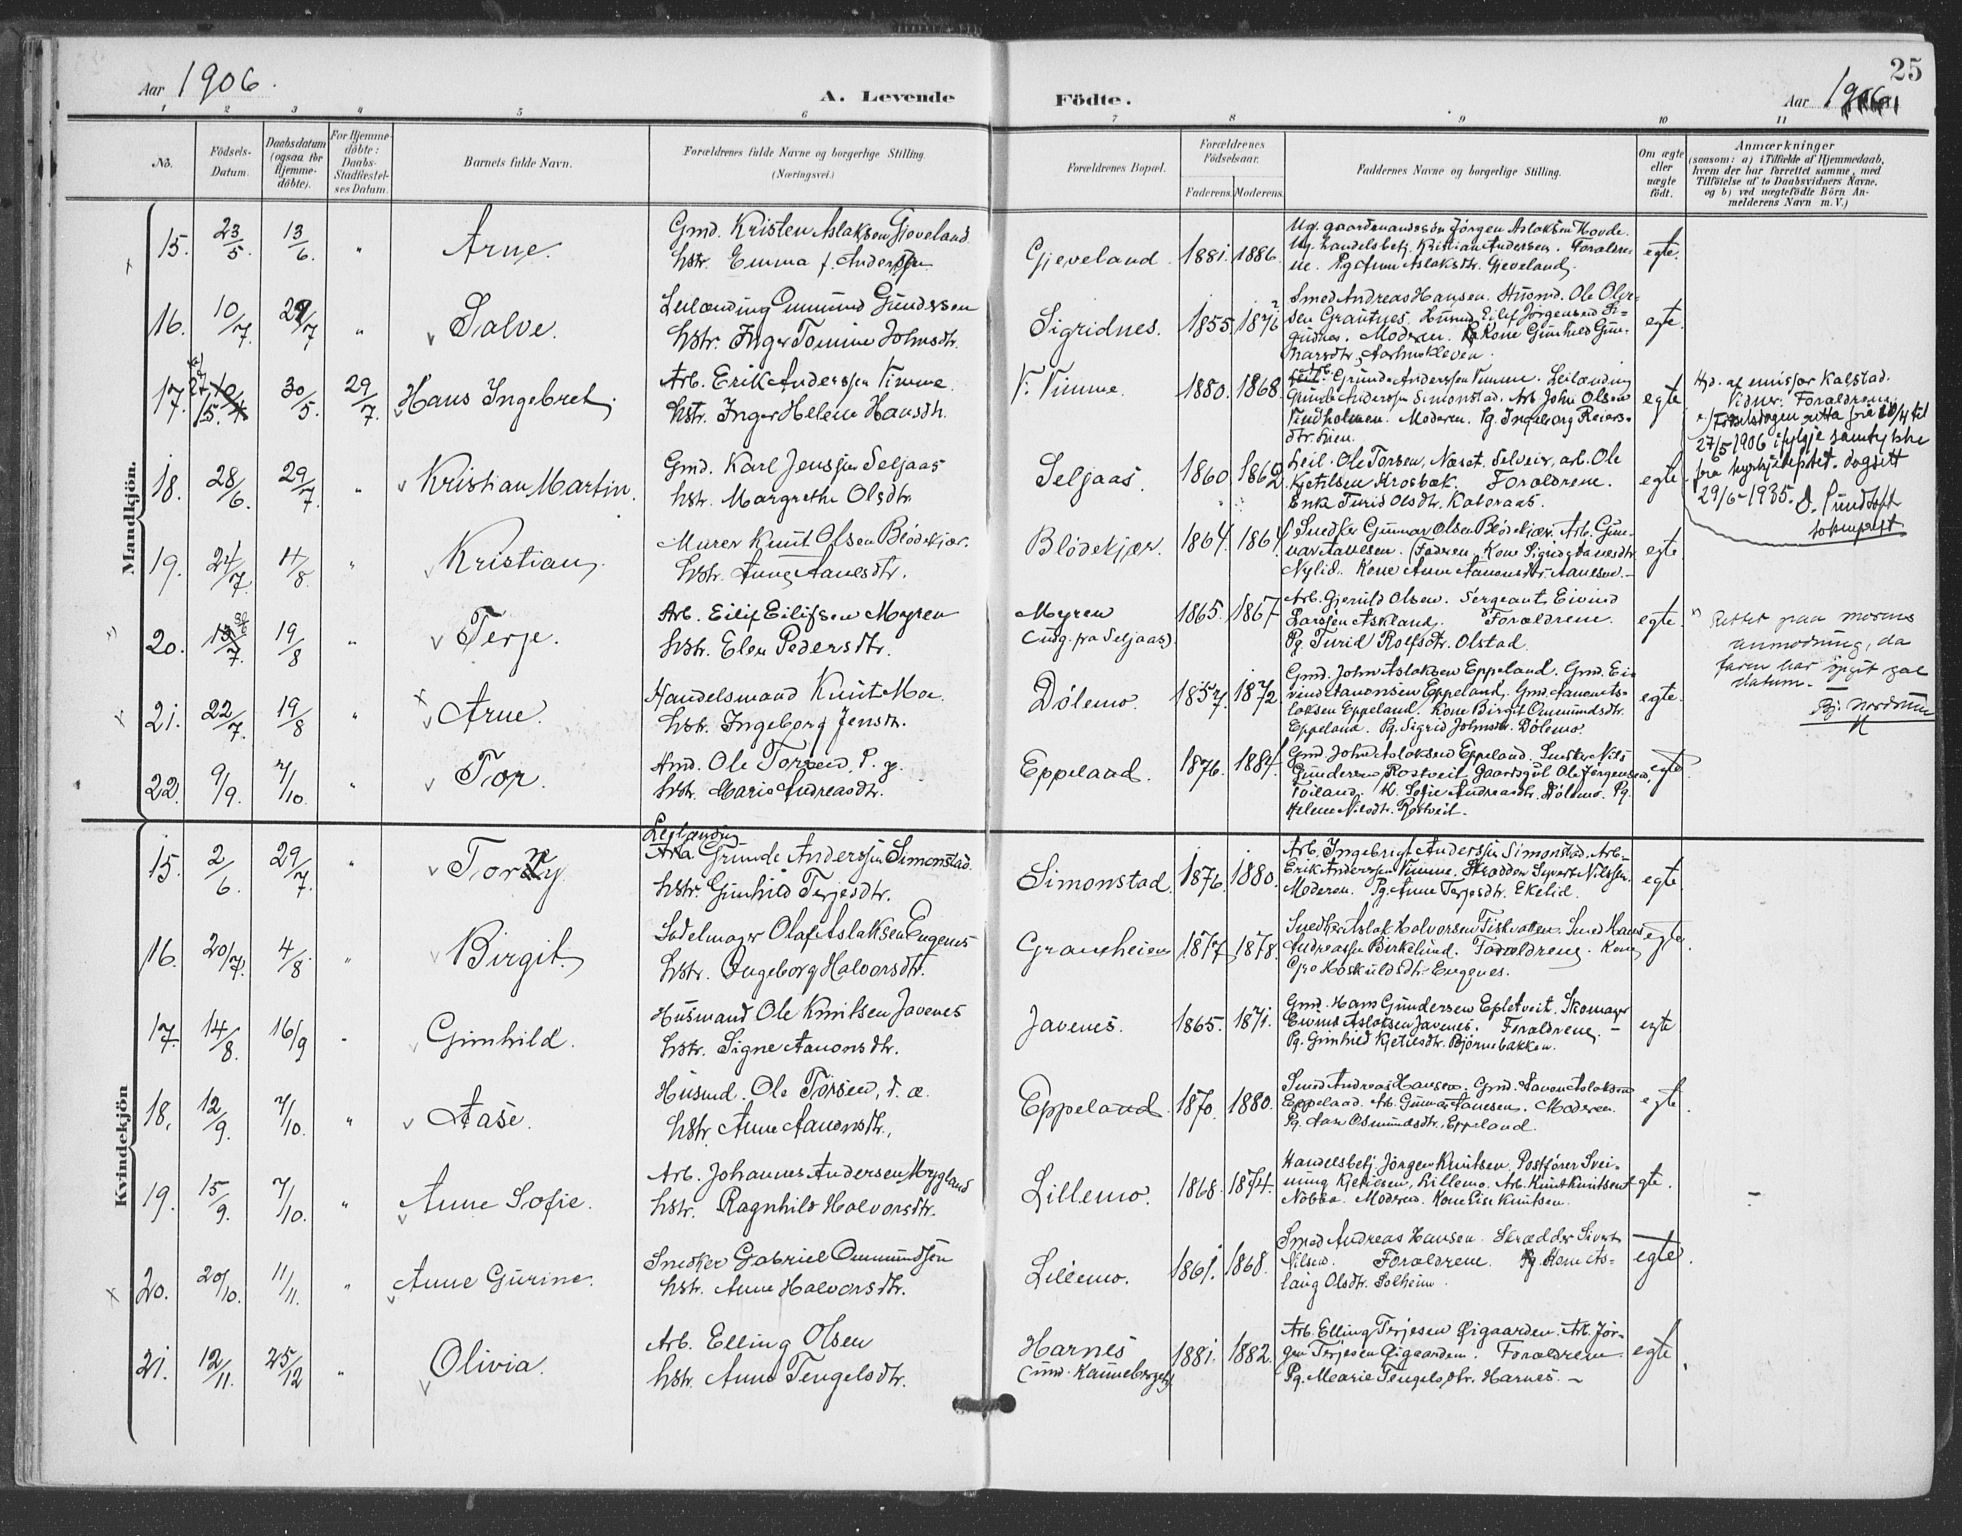 25
Aar 1906.
A. Levende Födte.
Aar 1906
1 2 3 4 5 6 7 8 9 10 11
No.
Födsels-Datum.
Daabsdatum (ogsaa for Hjemme-döbte).
For Hjemme-döbte: Daabs-Stadfæstel-ses Datum.
Barnets fulde Navn.
Forældrenes fulde Navne og borgerlige Stilling. (Næringsvei.)
Forældrenes Bopæl.
Forældrenes Födselsaar.
Faderens. Moderens.
Faddernes Navne og borgerlige Stilling.
Om ægte eller uægte födt.
Anmærkninger
(saasom: a) i Tilfælde af Hjemmedaab, hvem der har forrettet samme, med Tilföielse af to Daabsvidners Navne, og b) ved uægtefödte Börn An-melderens Navn m. V.)
Mandkjön.
15. 23/5. 13/6. " Arne. Gmd. Kristen Aslaksen Gjeveland
hstr. Emma f. Andersen
Gjeveland. 1881. 1886.
Ug. gaardmandssøn Jörgen Aslaksen Hovde.
Ug. handelsbetj. Kristian Andersen. Foraldre-
ne. Pg. Anne Aslaksdtr. Gjeveland.
egte.
16. 10/7. 29/7 " Salve. Leilænding Ommund Gundersen
hstr. Inger Tomine Johnsdtr.
Sigridnes. 1855 1876
Smed Andreas Hansen. Husmd. Ole Olve-
sen Grautnes. Husmd. Eilef Jörgensen Si-
gridnes. Moderen. Kone Gunhild Gun-
narsdtr.
egte.
17. 27/5. 30/5. 29/7. Hans Ingebret. Arb. Erik Anderssen Timme.
hstr. Inger Helene Hansdtr.
V. Timme. 1880. 1868
Arb. Grunde Anderssen Timme. Leilænding
Grunde Anderssen Simonstad. Arb. John Olsen
Moderen. Pg. Ingeborg Reiers-
dtr. Lien.
egte
Hjd. af emissær Kalstad.
Vidner: Foraldrene.
Fødselsdagen retta frå 10/4 til
27/5-1906 ifylgje samtykke
frå kyrkjedeptet. dagsett
29/6-1935.
sokneprest
18. 28/6. 29/7. " Kristian Martin. Gmd. Karl Jenssen Seljaas
hstr. Margrethe Olsdtr.
Seljaas. 1860 1862
Leil. Ole Torsen, Næset. Selveier, arb. Ole
Kjetilsen Krosbæk. Foraldrene.
Enke Turid Olsdtr. Kateraas.
egte
19. 24/7. 4/8. " Kristian. Murer Knut Olsen Blödekjær.
hstr. Anne Aanesdtr.
Blödekjær. 1864. 1864
Snedker Gunnar Olsen Blödekjær. Arb. Gun-
nar Aanesen. Faderen. Kone Signe Aanesdtr
Nylid. Kone Anne Aanonsdtr. Aanesen.
egte.
20. 13/7. 19/8 " Terje. Arb. Eilif Eilifsen Myren
hstr. Elen Pedersdtr.
Myren
(udg. fra Seljaas)
1865. 1867
Arb. Gjeruld Olsen. Sergeant Eivind
Larsen Askland. Foraldrene.
Pg. Turid Rolfsdtr. Olstad.
egte.
Rettet paa morens
anmodning, da
faren har opgit gal
datum.
21. 22/7. 19/8 " Arne. Handelsmand Knut Moe
hstr. Ingeborg Jensdtr.
Dölemo. 1857. 1872
Gmd. John Aslaksen Eppeland. Gmd. Ei-
vind Aanonsen Eppeland. Gmd. Aanon As-
laksen Eppeland. Kone Birgit Ommundsdtr.
Eppeland. Pg. Sigrid Johnsdtr. Dölemo.
egte.
22. 9/9. 7/10. Tor. Gmd. Ole Torsen, P. g.
hstr. Marie Andreasdtr.
Eppeland. 1876. 1884.
Gmd. John Aslaksen Eppeland. Snedker Nils
Gundersen Rostveit. Gaardsgut Ole Jörgensen,
Toiland. K. Sofie Andreasdtr. Dölemo. Pg.
Helene Nilsdtr. Rostveit.
egte
Kvindekjön
15. 2/6. 29/7. " Torny. Leilænding Grunde Anderssen Simonstad.
hstr. Gunhild Terjesdtr.
Simonstad. 1876. 1880.
Arb. Ingebrigt Anderssen Simonstad. Arb.
Erik Anderssen Timme. Skrædder Syvert Nilssen.
Moderen. Pg. Anne Terjesdtr. Ekelid.
egte
16. 20/7. 4/8. " Birgit. Sadelmager Olaf Aslaksen Engenes
hstr. Ingeborg Halvorsdtr.
Grauxheien 1877 1878.
Snedker Aslak Halvorsen Fiskvatn. Smed Hans
Andreassen Birkelund. Foraldrene. Kone
Gro Höskuldsdtr. Engenes.
egte
17. 14/8. 16/9 " Gunhild. Husmand Ole Knutsen Javenes
hstr. Signe Aanonsdtr.
Javenes. 1865. 1871.
Gmd. Hans Gundersen Epletveit. Skomager
Eivind Aslaksen Javenes. Foraldrene.
Pg. Gunhild Kjetilsdtr. Björnebakken.
egte
18. 12/9. 7/10. " Aase. Husmd. Ole Torsen, d. æ.
hstr. Anne Aanonsdtr.
Eppeland. 1870. 1880.
Smed Andreas Hansen. Gmd. Aanon Aslaksen
Eppeland. Arb. Gunnar Aanesen. Moderen.
Pg. Aase Osmundsdtr. Eppeland.
egte.
19. 15/9. 7/10. " Anne Sofie. Arb. Johannes Andersen Mygland
hstr. Ragnhild Halvorsdtr.
Lillemo. 1868. 1874.
Handelsbetj. Jörgen Knutsen. Postförer Svei-
nung Kjetilsen, Lillemo. Arb. Knut Knutsen
Nobba. Moderen. Kone Lise Knutsen.
egte.
20. 20/10. 11/11. " Anne Gurine. Snedker Gabriel Ommundsen
hstr. Anne Halvorsdtr.
Lillemo. 1861. 1868.
Smed Andreas Hansen. Skrædder Sivert
Nilsen. Foraldrene. Kone As-
laug Olsdtr. Solheim.
egte.
21. 12/11. 25/12 " Olivia. Arb. Elling Olsen
hstr. Anne Tengelsdtr.
Harnes
1881. 1882.
Arb. Elling Terjesen Öigaarden. Arb. Jör-
gen Terjesen Öigaarden. Foraldrene
Pg. Mearie Tengelsdtr. Harnes.
egte